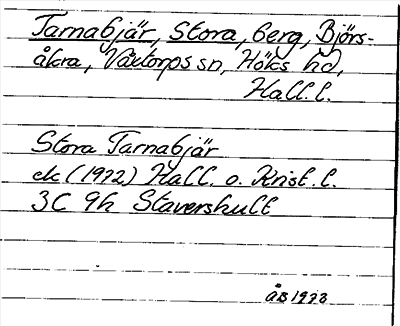 Tarnabjär, Stora, berg, Björs-
åkra, Växtorps sn, Höks hd,
Hall. l.
Stora Tarnabjär
ek (1972) Hall. o. Krist. l.
3C 9h Stavershult
ÅB 1973